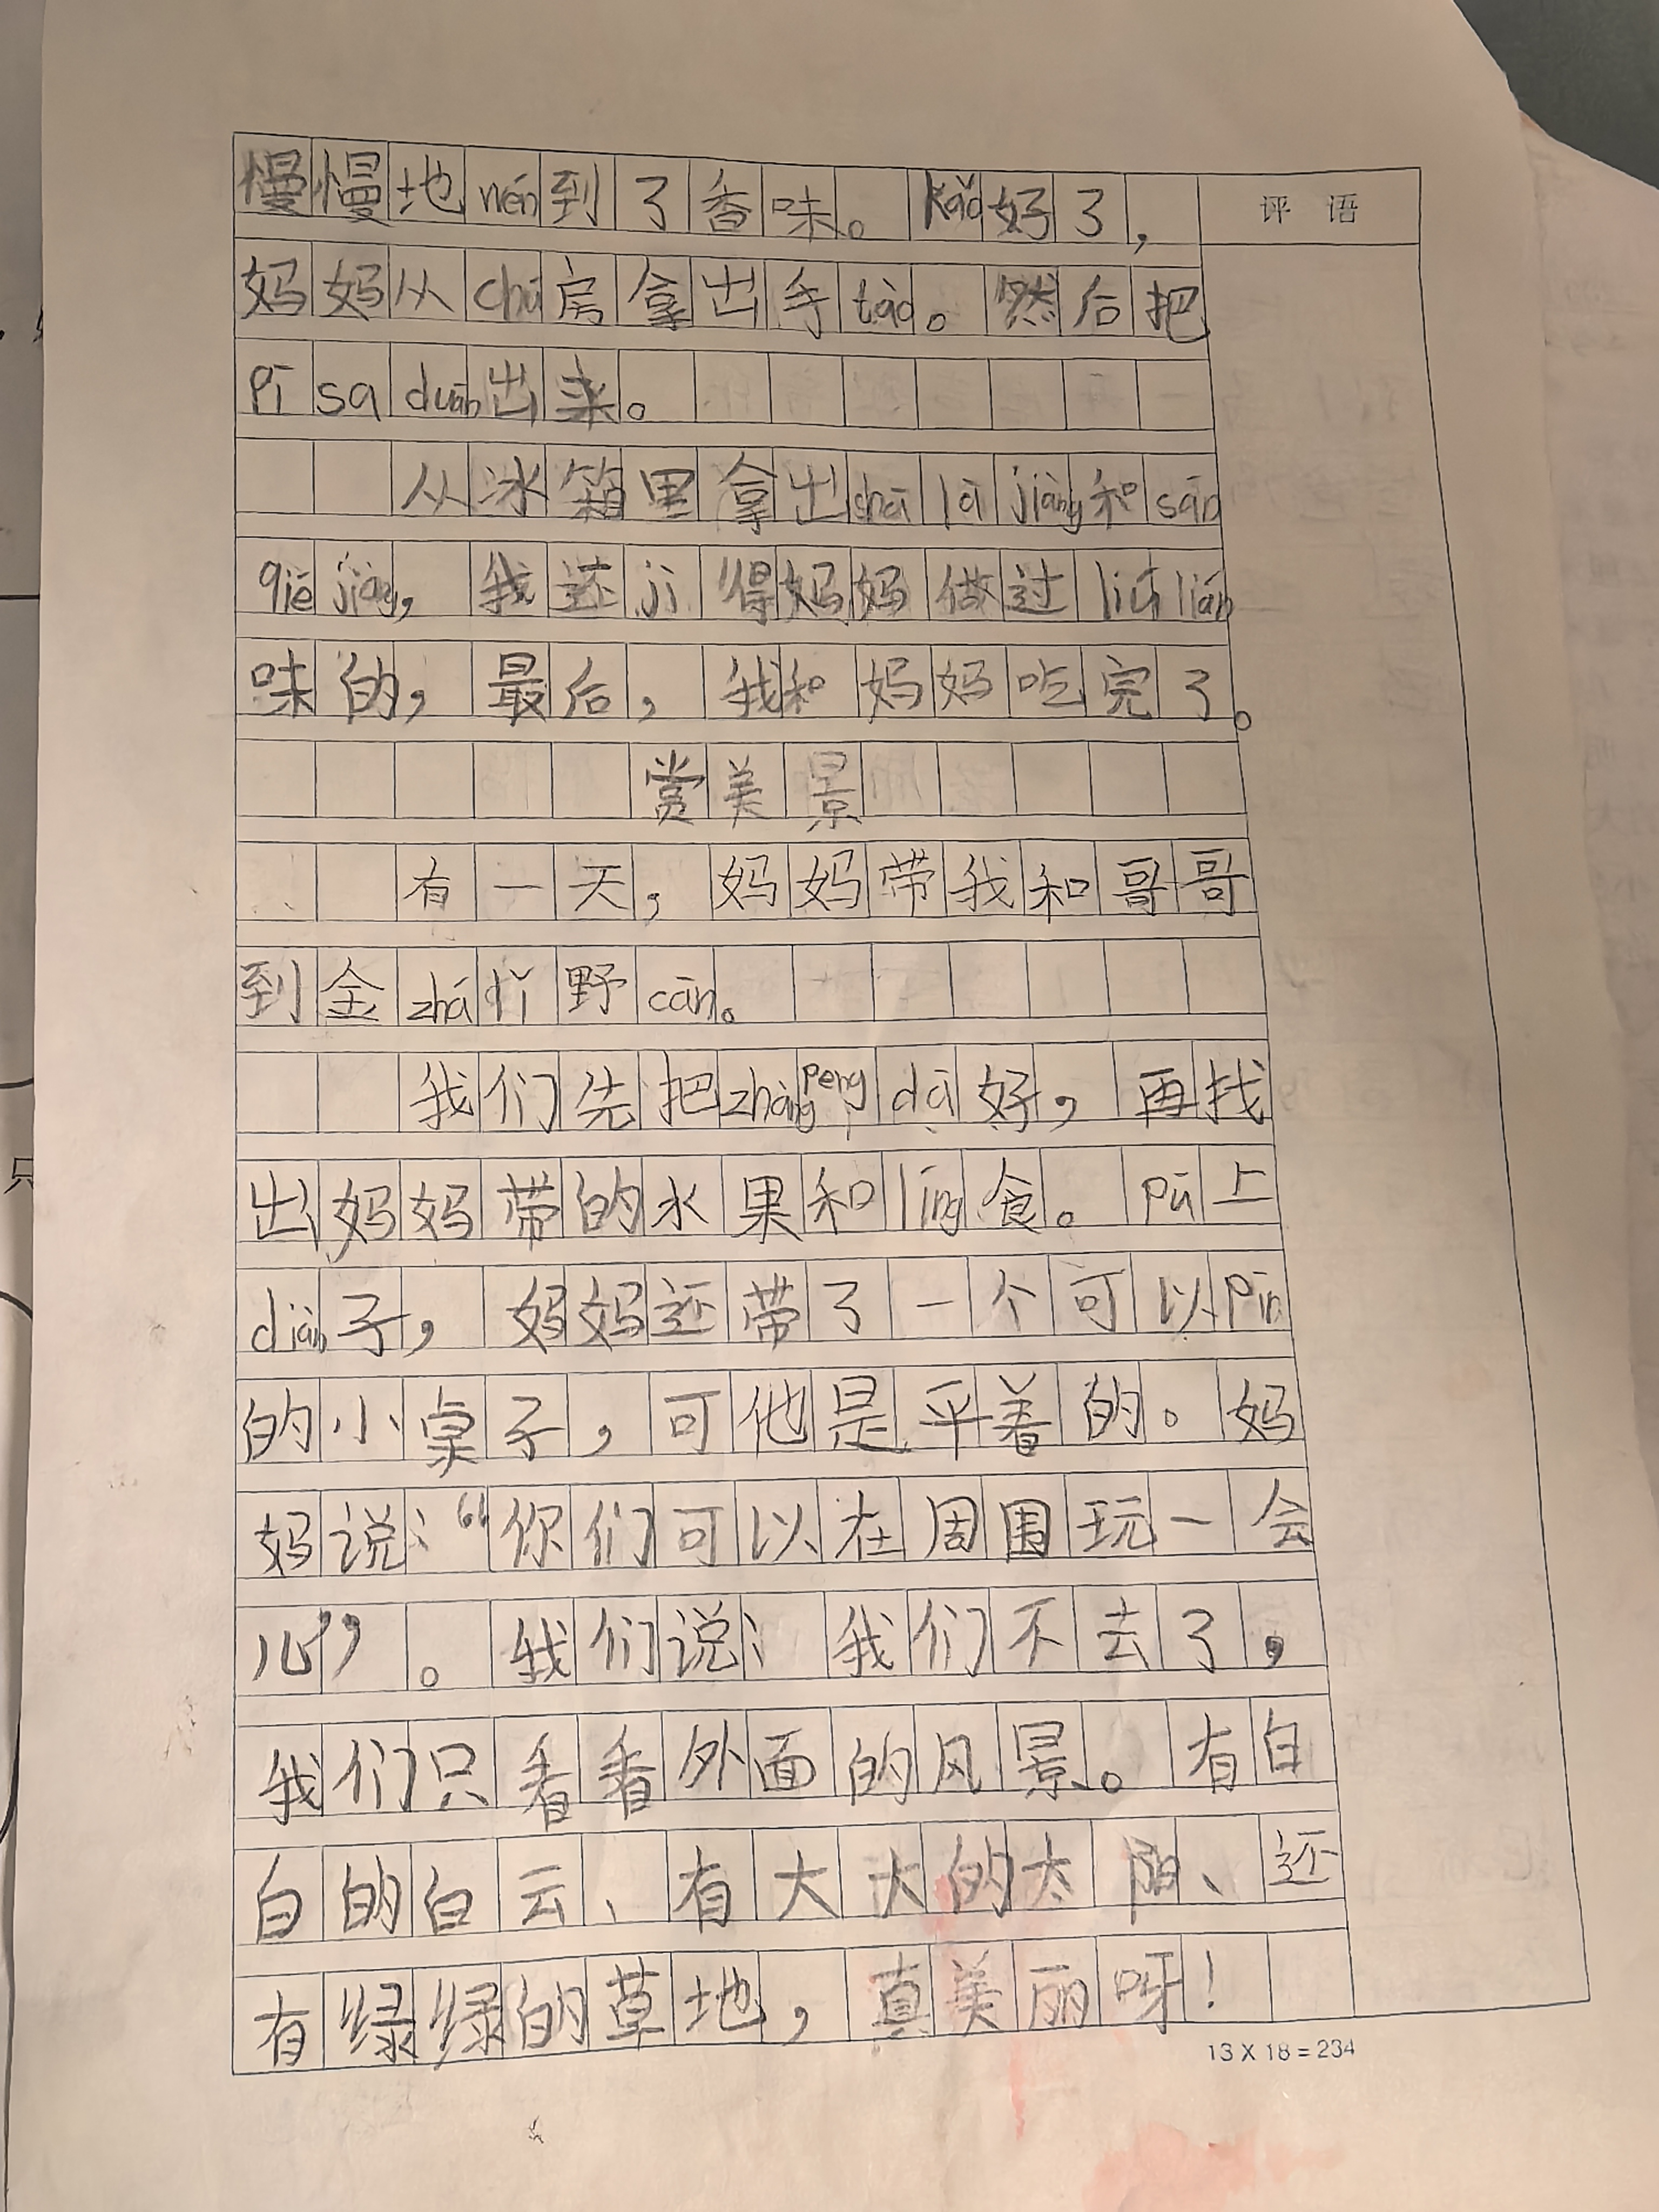 慢慢地nén到了香味。Kǎo好了，
评语
妈妈从chú房拿出手tào。然后把
Pī sà duān出来。
从冰箱里拿出shā lā jiàng和sān
qié jiàng，我还jì得妈妈做过liú lián
味的，最后，我和妈妈吃完了。
赏美景
有一天，妈妈带我和哥哥
到金zhá lǐ野cān。
我们先把zhàng peng dā好，再找
出妈妈带的水果和líng食。Pū上
diàn子，妈妈还带了一个可以Pīn
的小桌子，可他是平着的。妈
妈说：“你们可以在周围玩一会
儿”。我们说：我们不去了，
我们只看看外面的风景。有白
白的白云、有大大的太阳、还
有绿绿的草地，真美丽呀！
13 X 18 = 234